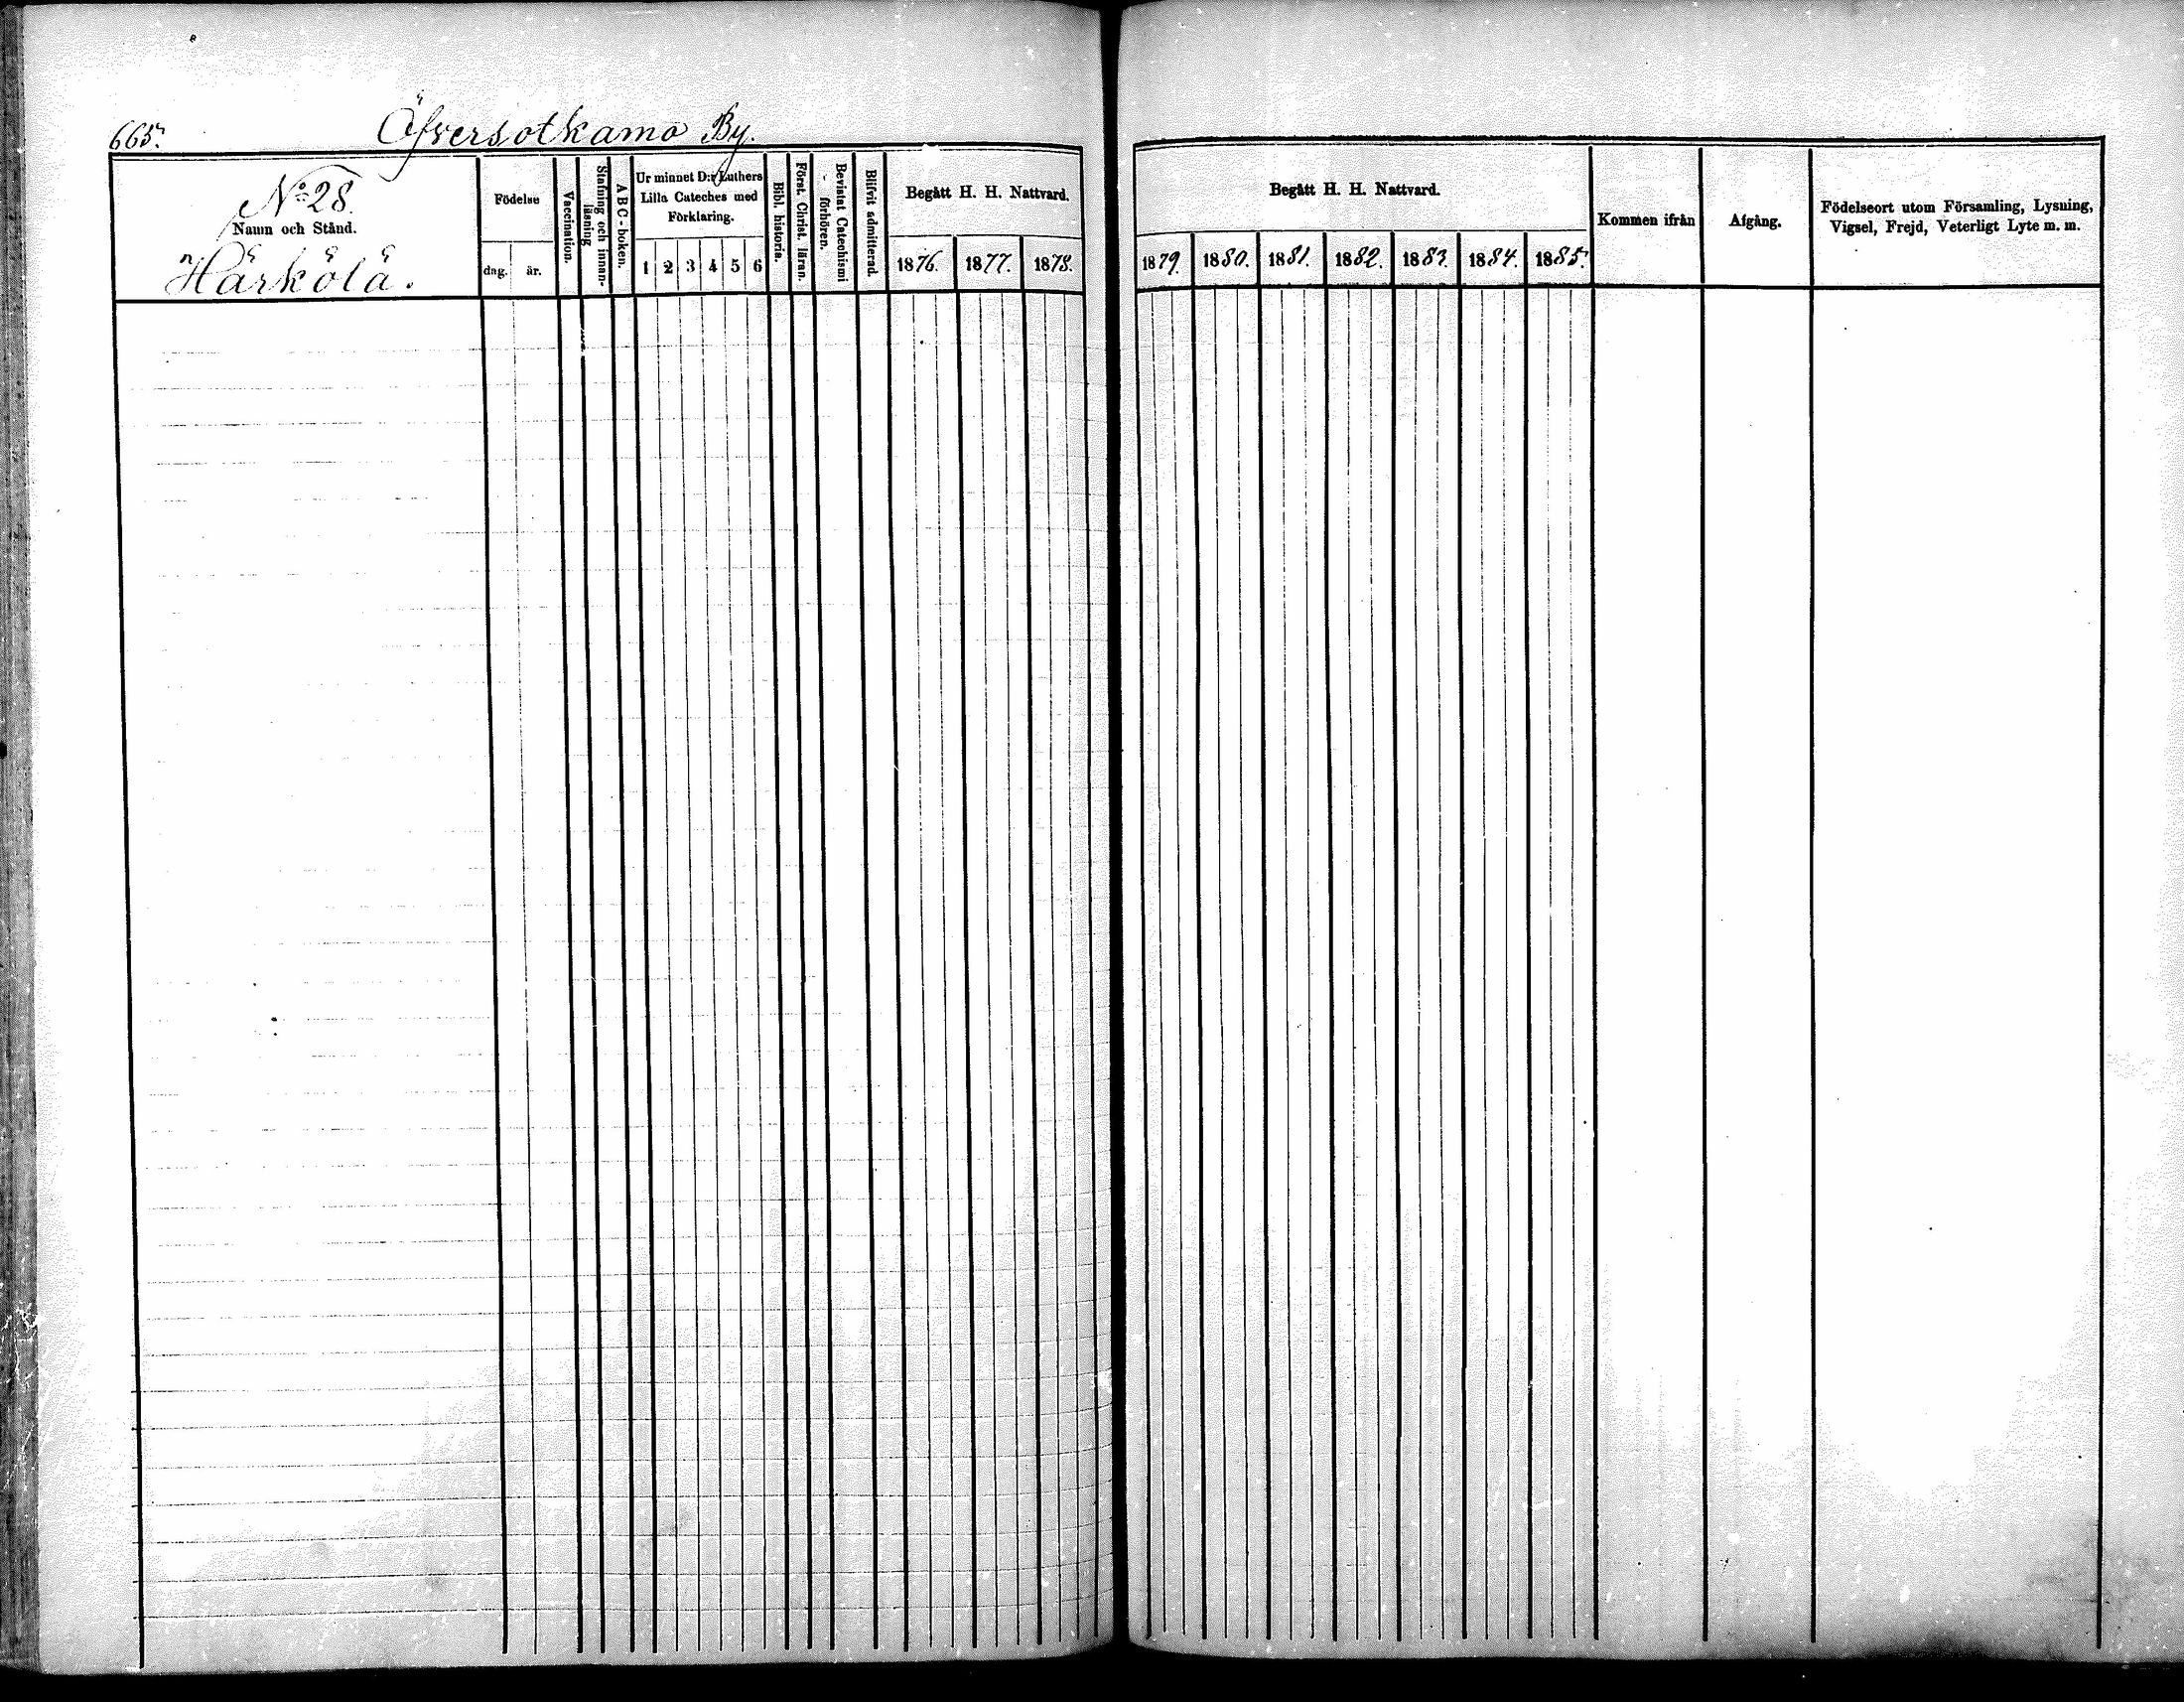 665.
Öfversotkamo By.
No 28.
Namn och Stånd.
Härkölä.
Födelse
dag.
år.
Vaccination.
Stafning och innan-
läsning
A B C - boken.
Ur minnet D:r Luthers
Lilla Cateches med
Förklaring.
1 2 3 4 5 6
Bibl. historia.
Först. Christ. läran.
Bevistat Catechismi
förhören.
Blifvit admitterad.
Begått H. H. Nattvard.
1876. 1877. 1878.
Begått H. H. Nattvard.
1879. 1880. 1881. 1882. 1883. 1884. 1885.
Kommen ifrån
Afgång.
Födelseort utom Församling, Lysning,
Vigsel, Frejd, Veterligt Lyte m. m.